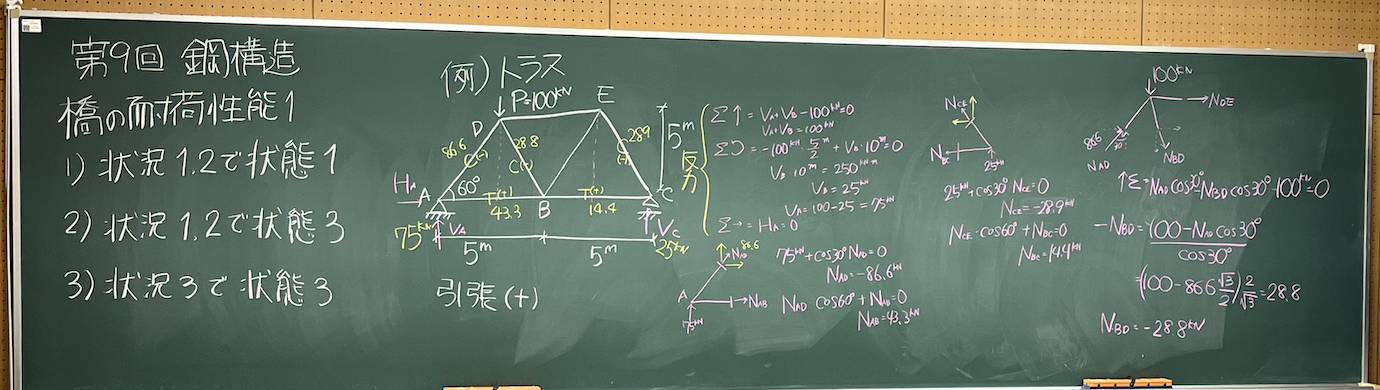 第9回 鋼構造
橋の耐荷性能1
1) 状況1,2で状態1
2) 状況1,2で状態3
3) 状況3で状態3
例) トラス
P=100kN
D
E
86.6
C(-)
28.8
C(-)
289
(-)
5m
HA
A
60°
T(+)
43.3
B
T(+)
14.4
C
75kN
VA
VC
25kN
5m
5m
引張(+)
反力
Σ↑ = VA+VB-100kN=0
VA+VB=100kN
Σ↻ = -100kN・5/2m + VB・10m=0
VB・10m = 250kN・m
VB=25kN
VA=100-25=75kN
Σ→ = HA=0
NAD
86.6
A
NAB
75kN
75kN+cos30°NAD=0
NAD=-86.6kN
NAD cos60°+NAB=0
NAB=43.3kN
NCE
NBC
25kN
25kN+cos30°NCE=0
NCE=-28.9kN
NCE・cos60°+NBC=0
NBC=14.4kN
100kN
NDE
86.6
30°
NAD
NBD
↑Σ=-NAD cos30°-NBD cos30°-100kN=0
-NBD=(100-NAD cos30°)/cos30°
=(100-86.6 √3/2) 2/√3=28.8
NBD=-28.8kN